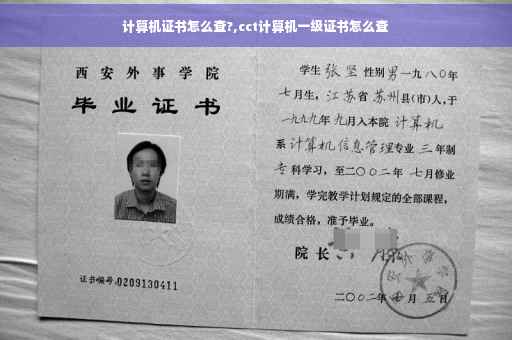 计算机证书怎么查?,cct计算机一级证书怎么查
西安外事学院
毕业证书
证书编号:0209130411
学生 张坚 性别 男 一九八〇年
七月生,江苏省 苏州县(市)人,于
一九九九年 九月入本院 计算机
系 计算机信息管理专业 三 年制
专科学习,至二〇〇二年 七月修业
期满,学完教学计划规定的全部课程,
成绩合格,准予毕业。
院长
二〇〇二年 月 五日